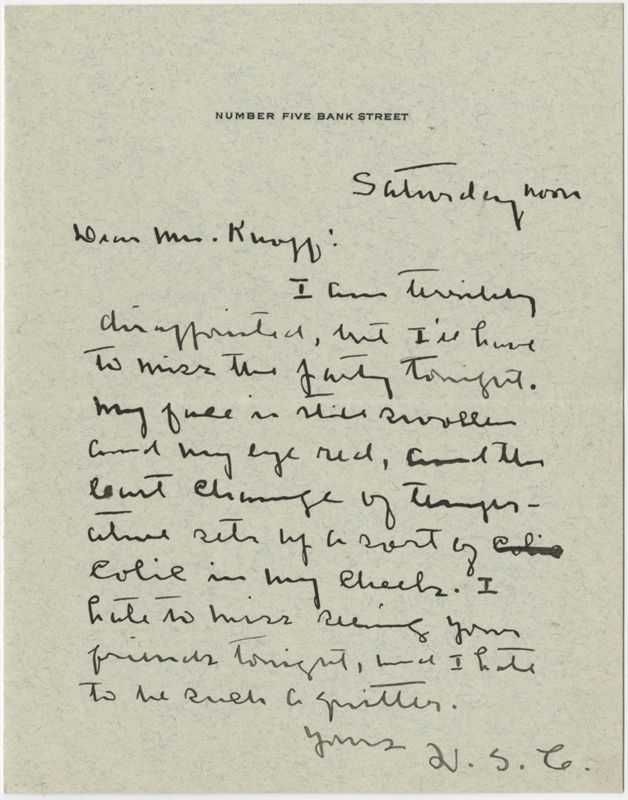 NUMBER FIVE BANK STREET
Saturday noon
Dear Mrs. Knopf:
I am terribly
disappointed, but I'll have
to miss the party tonight.
My face is still swollen
and my eye red, and the
least change of temper-
ature sets up a sort of colic
colic in my cheek. I
hate to miss seeing your
friends tonight, and I hate
to be such a quitter.
Yours W. S. C.